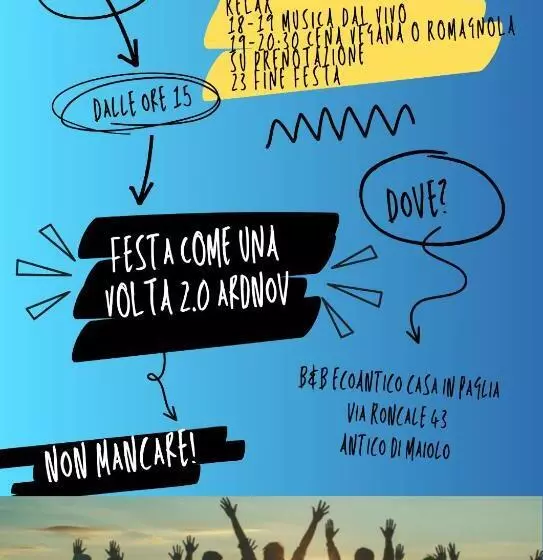 RELAX
18-19 MUSICA DAL VIVO
19-20:30 CENA VEGANA O ROMAGNOLA
SU PRENOTAZIONE
23 FINE FESTA
DALLE ORE 15
DOVE?
FESTA COME UNA
VOLTA 2.0 ARDNOV
B&B ECOANTICO CASA IN PAGLIA
VIA RONCALE 43
ANTICO DI MAIOLO
NON MANCARE!